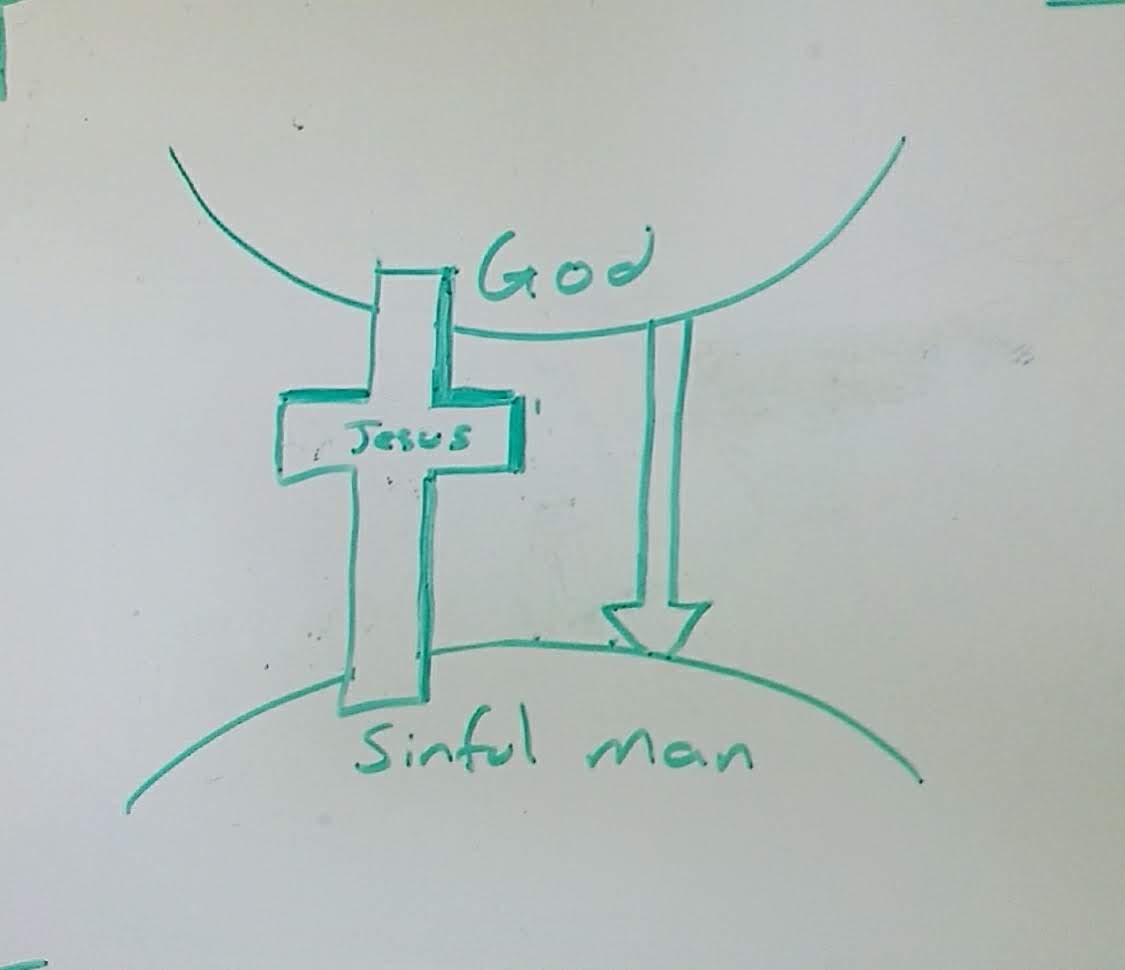 God
Jesus
Sinful man